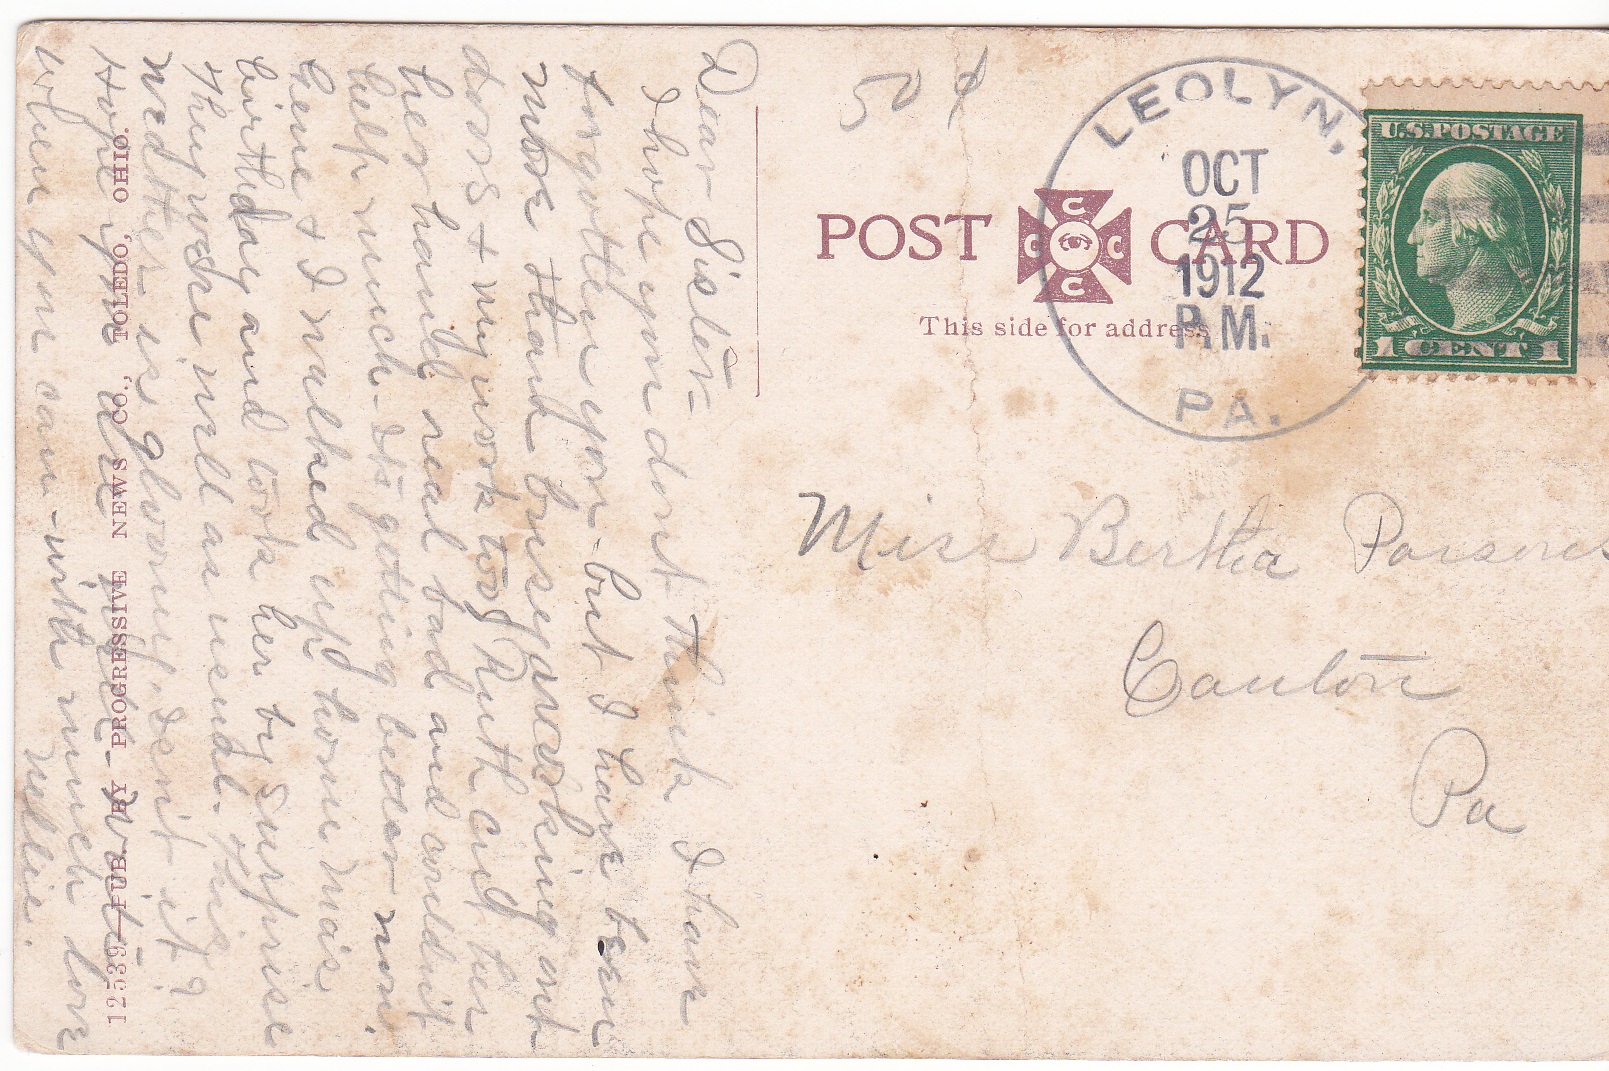 Dear Sister-
I hope you dont think I have
forgotten you - but I have been
more than busy working out
doors + my work too, Ruth cut her
her hand real bad and couldn't
help much - It's getting better now.
Gene + I walked up home Ma's
birthday and took her by surprise
They were well as usual. This
weather is gloomy. Isn't it?
Hope you are well - Write
when you can - with much love
Nellie.
12539—PUB. BY PROGRESSIVE NEWS CO., TOLEDO, OHIO.
50 ¢
POST CARD
C C C C
This side for address
LEOLYN,
OCT
25
1912
P.M.
PA.
U.S. POSTAGE
1 CENT 1
Miss Bertha Parsons
Canton
Pa